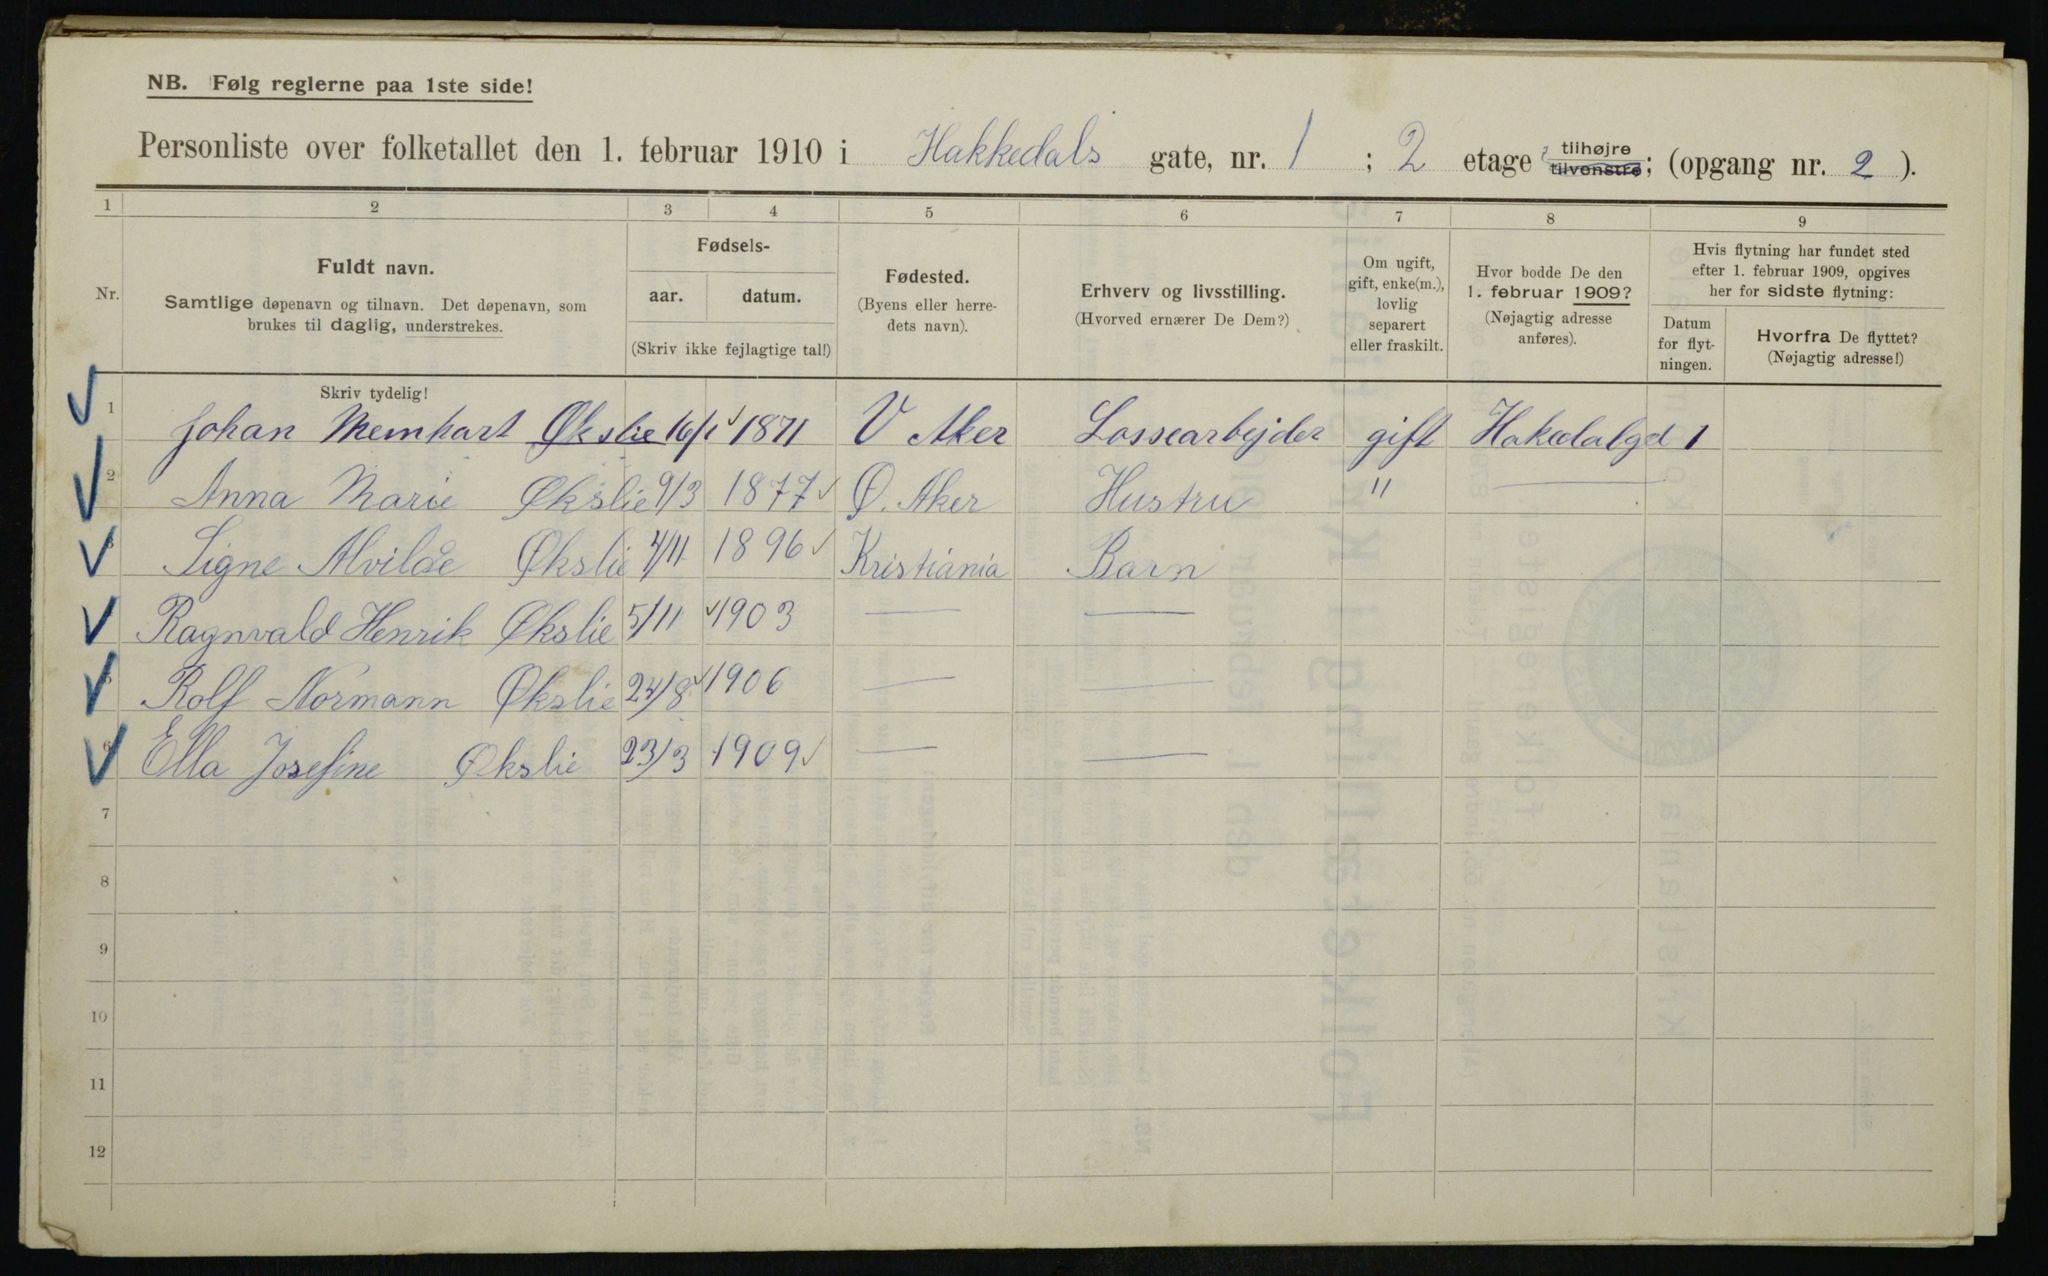 NB. Følg reglerne paa 1ste side!
Personliste over folketallet den 1. februar 1910 i Hakkedals gate, nr. 1 ; 2 etage tilhøjre tilvenstre; (opgang nr. 2 ).
1 2 3 4 5 6 7 8 9
Nr.
Fuldt navn.
Samtlige døpenavn og tilnavn. Det døpenavn, som
brukes til daglig, understrekes.
Fødsels-
aar. datum.
(Skriv ikke fejlagtige tal!)
Fødested.
(Byens eller herre-
dets navn).
Erhverv og livsstilling.
(Hvorved ernærer De Dem?)
Om ugift,
gift, enke(m.),
lovlig
separert
eller fraskilt.
Hvor bodde De den
1. februar 1909?
(Nøjagtig adresse
anføres).
Hvis flytning har fundet sted
efter 1. februar 1909, opgives
her for sidste flytning:
Datum
for flyt-
ningen.
Hvorfra De flyttet?
(Nøjagtig adresse!)
Skriv tydelig!
1 Johan Meinhart Økslie 16/1 1871 V Aker Lossearbejder gift Hakedalgd 1
2 Anna Marie Økslie 9/3 1877 Ø. Aker Hustru " —
3 Signe Alvilde Økslie 4/11 1896 Kristiania Barn
Ragnvald Henrik Økslie 5/11 1903 — —
5 Rolf Normann Økslie 24/8 1906 — —
6 Ella Josefine Økslie 23/3 1909 — —
7
8
9
10
11
12